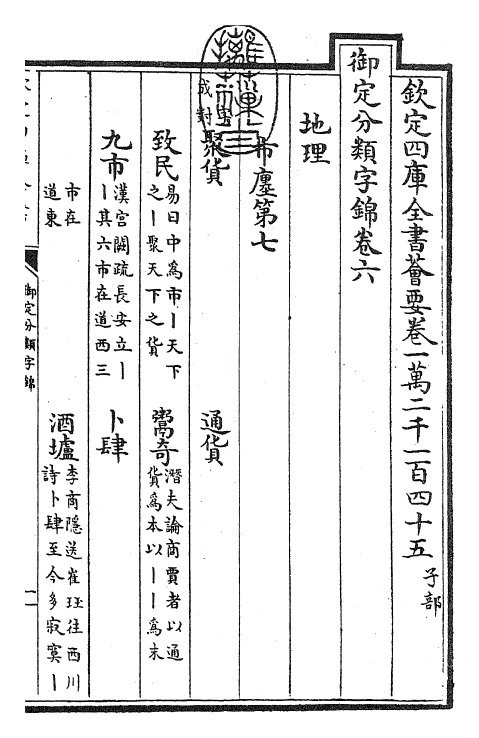 欽定四庫全書薈要卷一萬二千一百四十五 子部
御定分類字錦卷六
地理
市廛第七
成對
聚貨 通貨
致民 易日中爲市丨天下之丨聚天下之貨 鬻奇 潛夫論商賈者以通貨爲本以丨丨爲末
九市 漢宫闕疏長安立丨丨其六市在道西三 卜肆
市在道東 酒壚 李商隱送崔珏往西川詩卜肆至今多寂寞丨
御定分類字錦